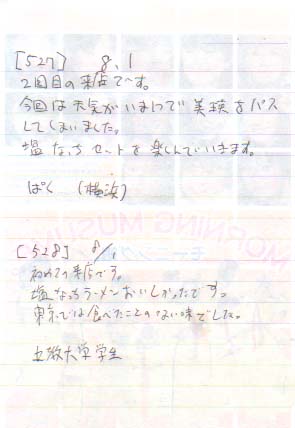 [527] 8.1
2回目の来店で〜す。
今回は天気がいまいちで美瑛をパス
してしまいました。
塩なっちセットを楽しんでいきます。
ぱく (横浜)
[528] 8/1
初めての来店です。
塩なっちラーメンおいしかったです。
東京では食べたことのない味でした。
立教大学学生
MORNING MUSUM
モーニング